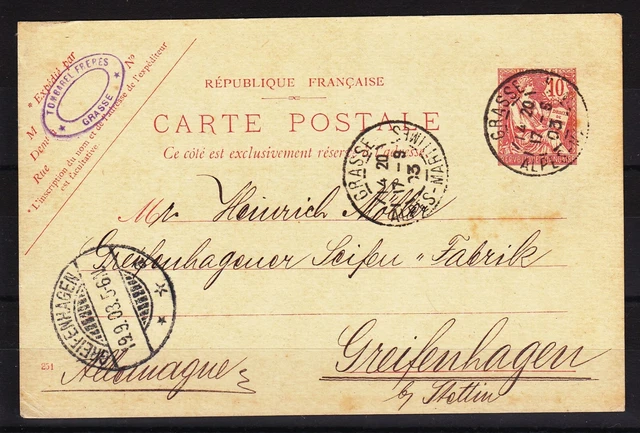 * Expédié par
M
Dem^t
Rue
N°
* L'inscription du nom et de l'adresse de l'expéditeur
est facultative.
TOMBAREL FRERES
* GRASSE *
RÉPUBLIQUE FRANÇAISE
CARTE POSTALE
Ce côté est exclusivement réservé à l'adresse
10
GRASSE
14 20
17 - 9
03
ALPES-MARITIMES
GRASSE
14 20
17 - 9
03
ALPES
Mr Heinrich Möller
Greifenhagener Seifen = Fabrik
Greifenhagen
b/ Stettin
Allemagne
GREIFENHAGEN
19.9.03.5-6N
251